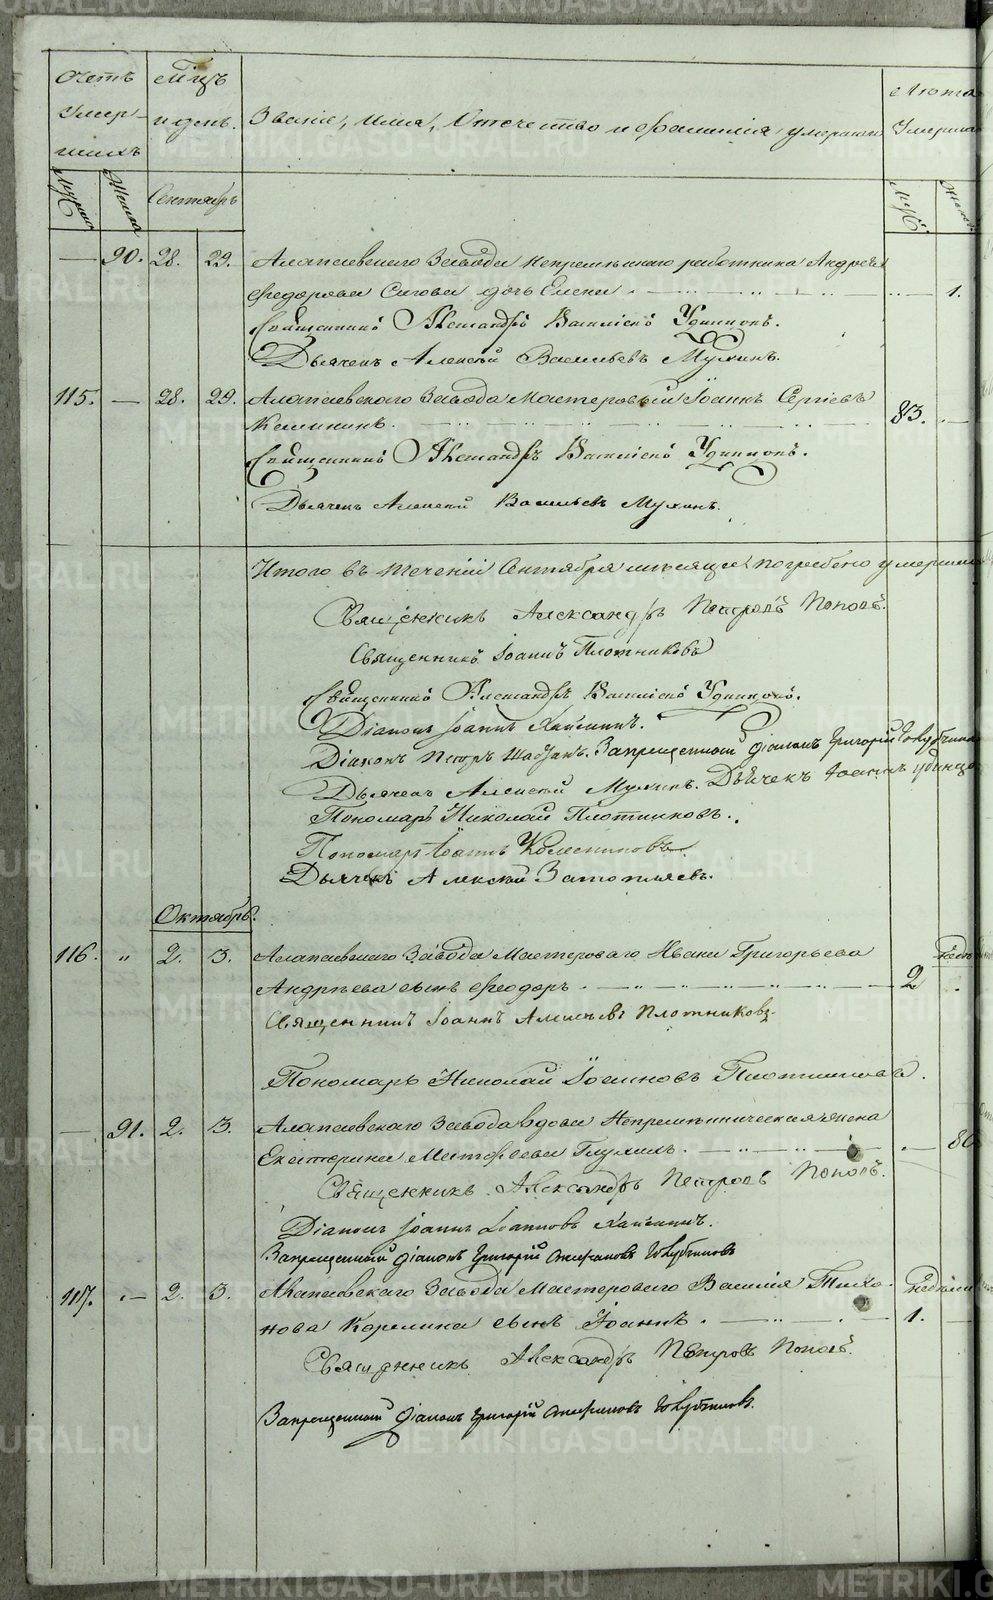 Счетъ умер-шихъ
Мѣсяцъ и день.
Званіе, имя, отечество и фамилія умершаго
Лѣта умершаго
Мужеска
Женска
Сентябрь
Муж
Женск
90. 28. 29. Алапаевскаго Завода Непремѣннаго работника Андрея
Федорова Сигова дочь Елена. 1.
Священникъ Александръ Василіевъ Удинцовъ.
Дьячекъ Алексѣй Васильевъ Мухинъ.
115. — 28. 29. Алапаевскаго Завода Мастеровый Іоаннъ Сергіевъ
83.
Священникъ Александръ Василіевъ Удинцовъ.
Дьячекъ Алексѣй Васильевъ Мухинъ.
Итого въ теченіи Сентября мѣсяца погребено умершихъ
Священникъ Александръ Петровъ Поповъ.
Священникъ Іоаннъ Плотниковъ
Священникъ Александръ Василіевъ Удинцовъ.
Діаконъ Іоаннъ
Діаконъ Петръ Запрещенный діаконъ Григорій Голубчиковъ
Дьячекъ Алексѣй Мухинъ. Дьячекъ Іоаннъ Удинцовъ
Пономарь Николай Плотниковъ.
Пономарь Іоаннъ Колесниковъ
Дьячекъ Алексѣй Затопляевъ.
Октябрь.
116. " 2. 3. Алапаевскаго Завода Мастероваго Ивана Григорьева
Андреева сынъ Феодоръ. 2
Священникъ Іоаннъ Алексѣевъ Плотниковъ.
Пономарь Николай Іоанновъ Плотниковъ.
— 91. 2. 3. Алапаевскаго Завода вдова Непремѣнническая жена
Екатерина Матфеева Глухихъ. 80
Священникъ Александръ Петровъ Поповъ.
Діаконъ Іоаннъ Іоанновъ
Запрещенный діаконъ Григорій Стефановъ Голубчиковъ
117. — 2. 3. Алапаевскаго Завода Мастероваго Василія Тихо-
нова Карелина сынъ Іоаннъ. 1.
Священникъ Александръ Петровъ Поповъ.
Запрещенный діаконъ Григорій Стефановъ Голубчиковъ.
METRIKI.GASO-URAL.RU